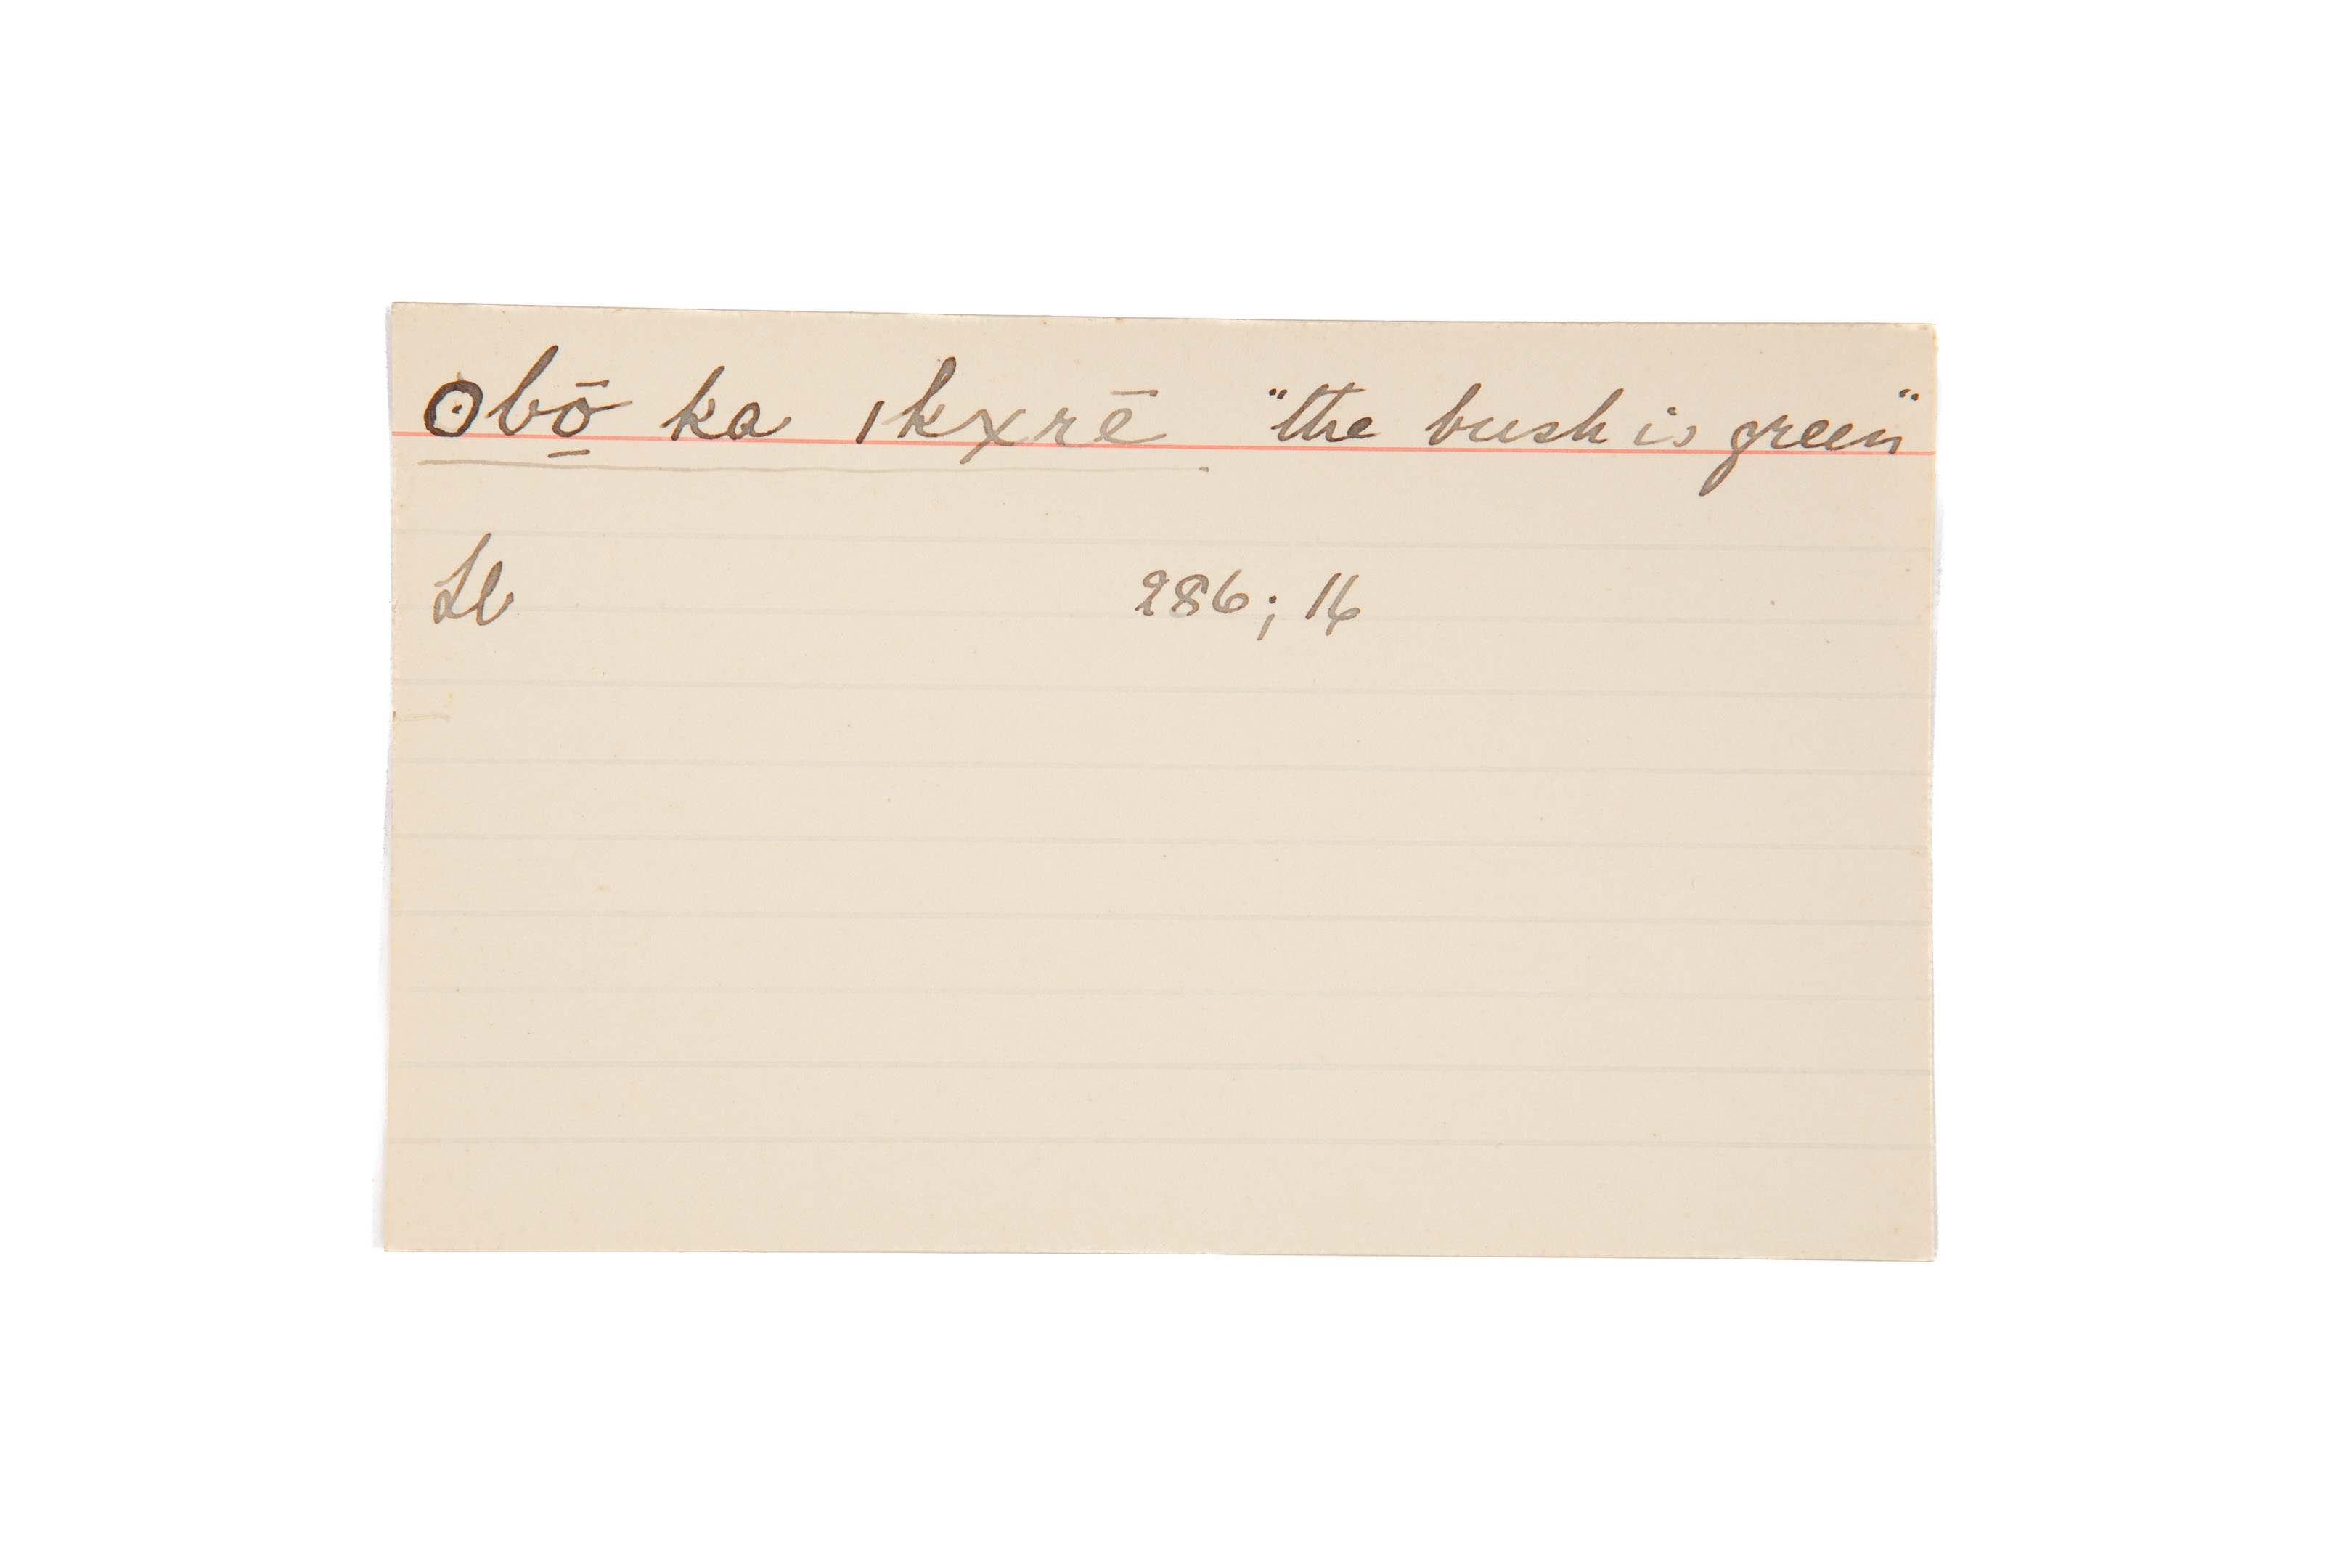 ʘbō̱ ka ǀkxrē "the bush is green"
Ll 286; 16